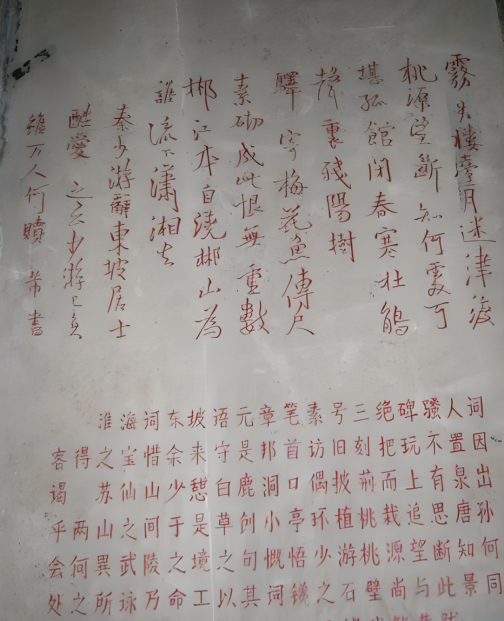 霧失樓臺月迷津渡
桃源望斷知何處可
堪孤館閉春寒杜鵑
聲裏殘陽樹
驛寄梅花魚傳尺
素砌成此恨無重數
郴江本自遶郴山為
誰流下瀟湘去
秦少游辭東坡居士
酷愛之云少游已矣
雖万人何贖 芾書
淮海词东坡语元章笔素号三绝碑骚人词
客得之宝惜余来守是邦首访旧刻把玩不置因
谒苏仙山少憩白鹿洞口偶披荊而上有泉出
乎两山之间于是草创小亭环植桃栽追思唐孙
会何異武陵之境之句慨悟少游桃源望断知何
处之所咏乃命工以其词镌之石壁尚与此景同